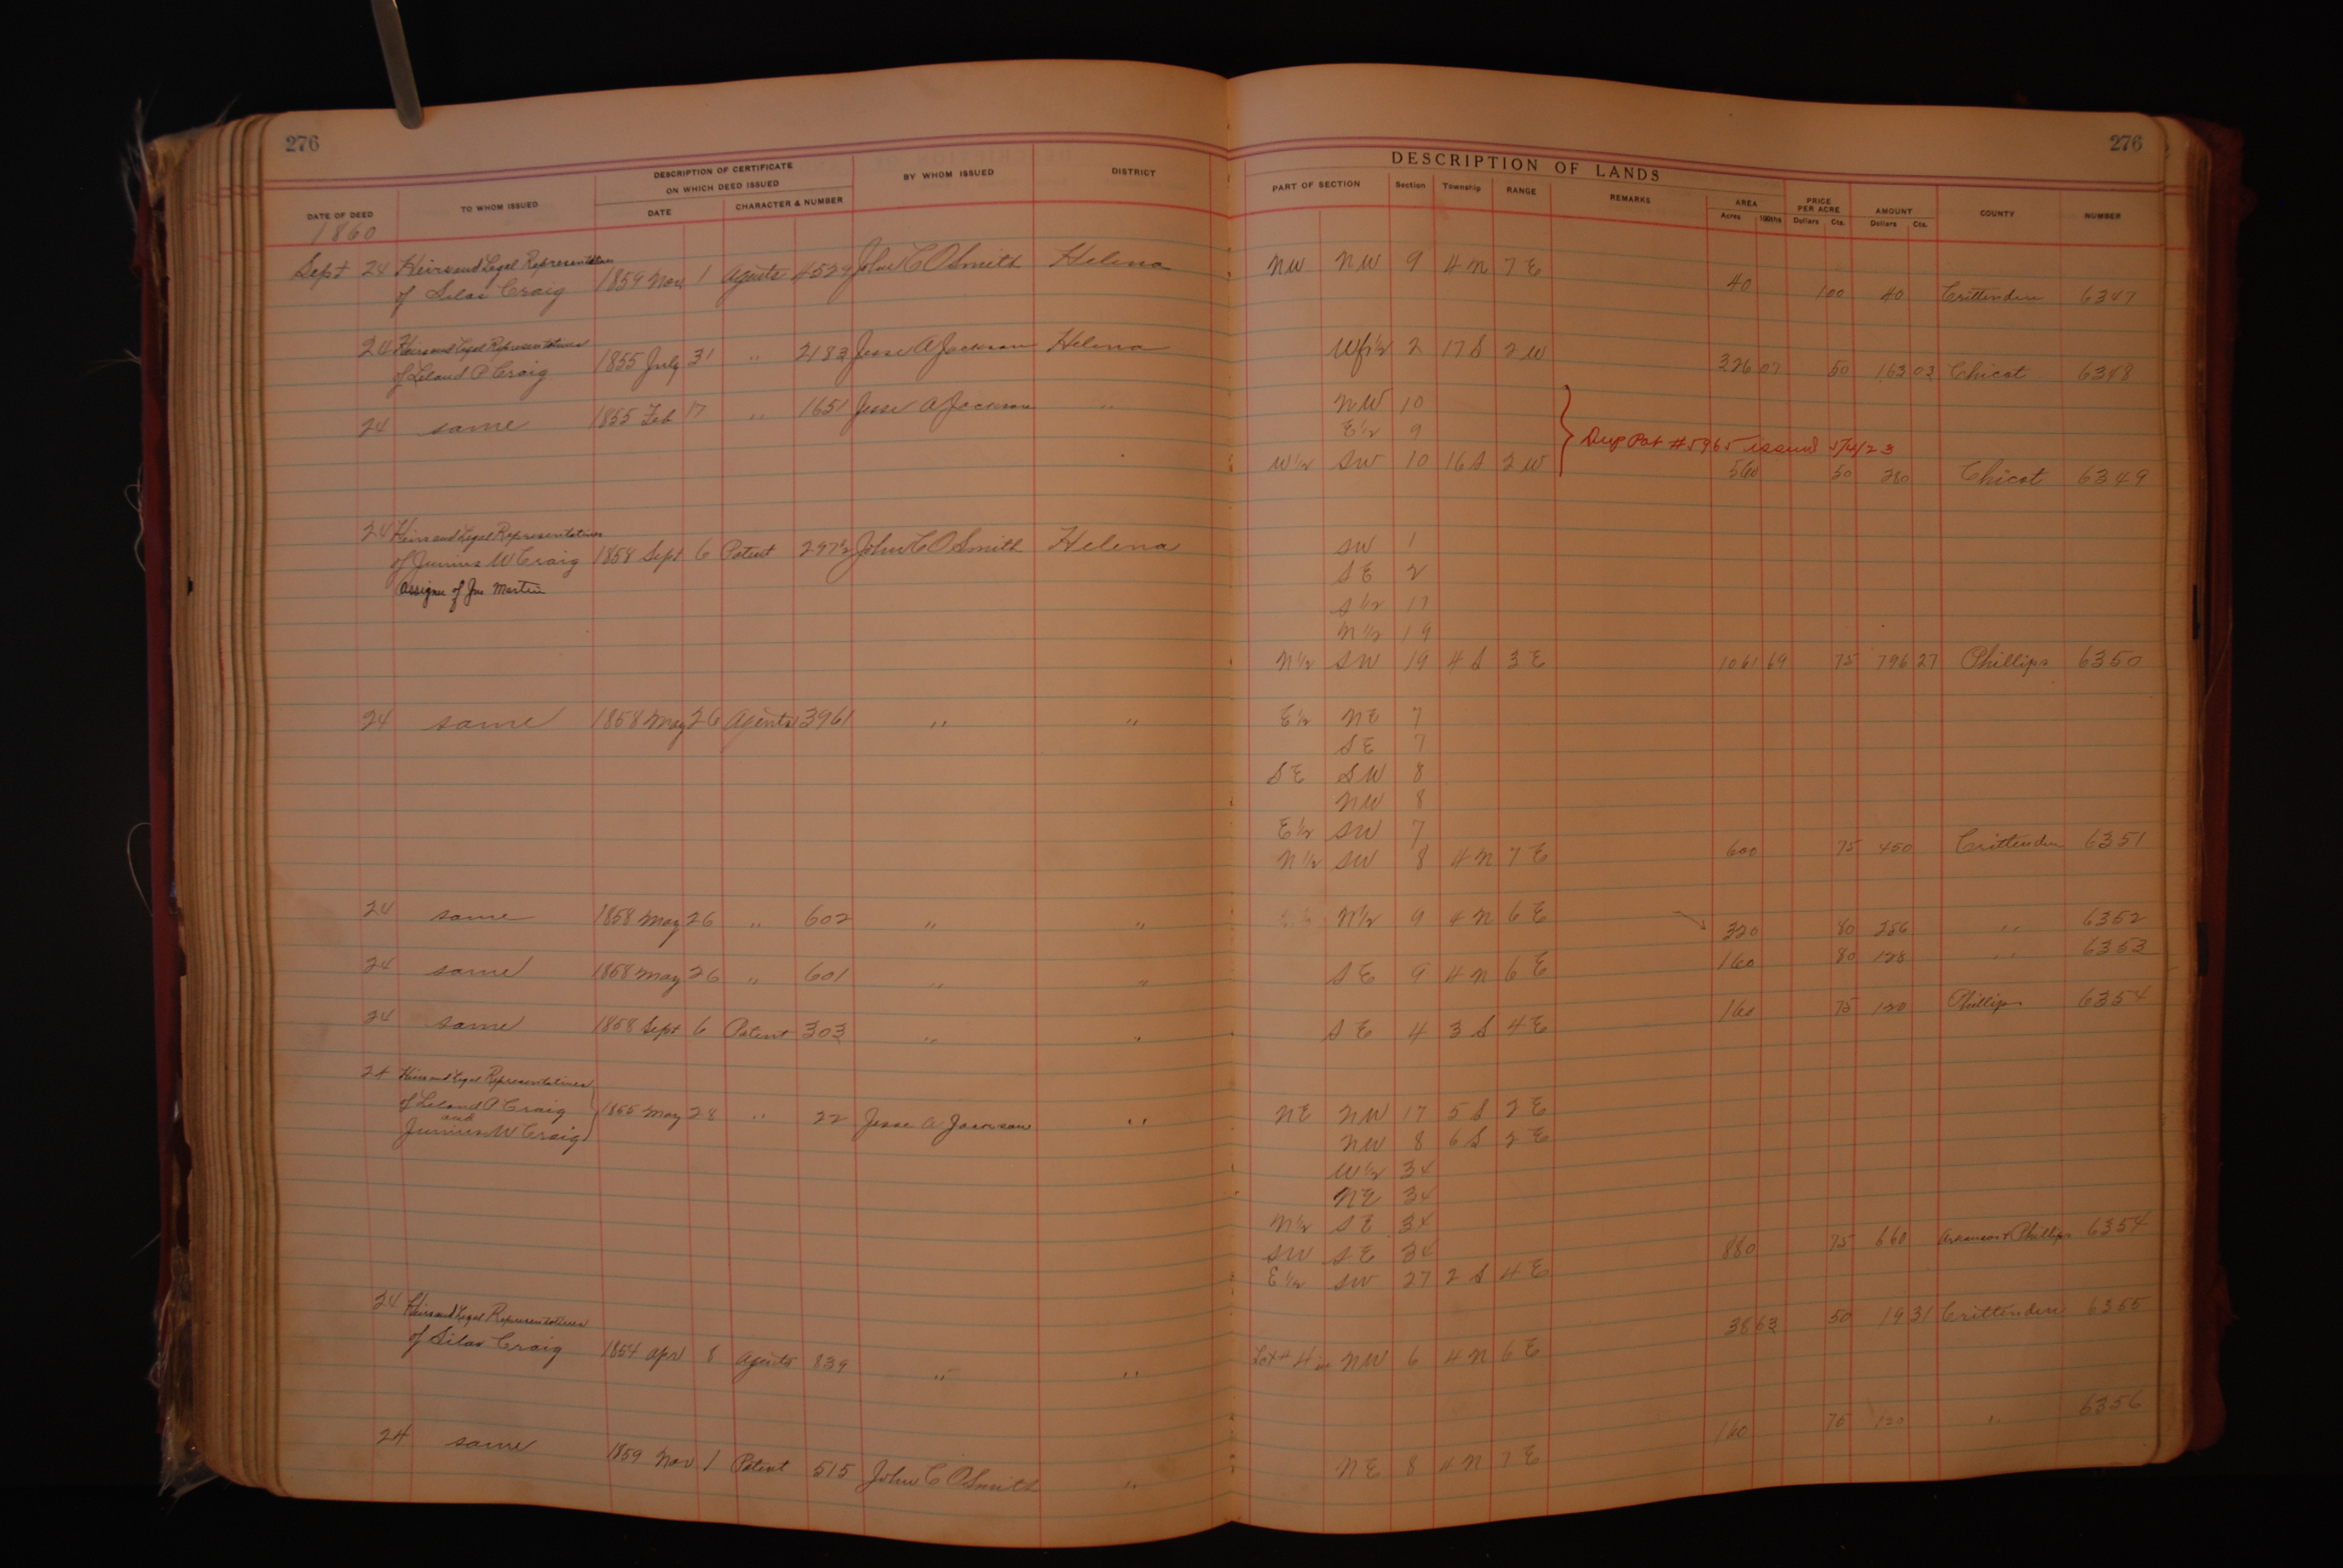 276
276
DESCRIPTION OF LANDS
DATE OF DEED TO WHOM ISSUED DESCRIPTION OF CERTIFICATE ON WHICH DEED ISSUED DATE CHARACTER & NUMBER BY WHOM ISSUED DISTRICT PART OF SECTION Section Township RANGE REMARKS AREA Acres 100ths PRICE PER ACRE Dollars Cts. AMOUNT Dollars Cts. COUNTY NUMBER
1860
Sept 24 Heirs and Legal Representatives 1859 Nov 1 Agents 4529 John C O Smith Helena NW NW 9 4 N 7 E
of Silas Craig 40 100 40 Crittenden 6347
24 Heirs and Legal Representatives 1855 July 31 " 2183 Jesse A Jackson Helena Wfr½ 2 17 S 2 W
of Leland P Craig 326 07 50 163 03 Chicot 6348
24 same 1855 Feb 17 " 1651 Jesse A Jackson " NW 10
E½ 9
Dup Pat # 5965 issued 5/4/23
W½ SW 10 16 S 2 W 560 50 280 Chicot 6349
24 Heirs and Legal Representatives
of Junius W Craig 1858 Sept 6 Patent 297½ John C O Smith Helena SW 1
SE 2
Assignee of Jno Martin
S½ 17
N½ 19
N½ SW 19 4 S 3 E 1061 69 75 796 27 Phillips 6350
24 same 1858 May 26 Agents 3961 " " E½ NE 7
SE 7
SE SW 8
NW 8
E½ SW 7
N½ SW 8 4 N 7 E 600 75 450 Crittenden 6351
24 same 1858 May 26 " 602 " " N½ 9 4 N 6 E 320 80 256 " 6352
24 same 1858 May 26 " 601 " " SE 9 4 N 6 E 160 80 128 " 6353
24 same 1858 Sept 6 Patent 303 " " SE 4 3 S 4 E 160 75 120 Phillips 6354
24 Heirs and Legal Representatives
of Leland P Craig 1855 May 28 " 22 Jesse A Jackson " NE NW 17 5 S 2 E
and
Junius W Craig NW 8 6 S 2 E
W½ 34
NE 34
N½ SE 34
SW SE 34 880 75 660 Arkansas & Phillips 6354
E½ SW 27 2 S 4 E
24 Heirs and Legal Representatives
of Silas Craig 1854 Apr 8 Agents 839 " " Lot # 4 in NW 6 4 N 6 E 38 63 50 19 31 Crittenden 6355
24 same 1859 Nov 1 Patent 515 John C O Smith " NE 8 4 N 7 E 160 75 120 " 6356